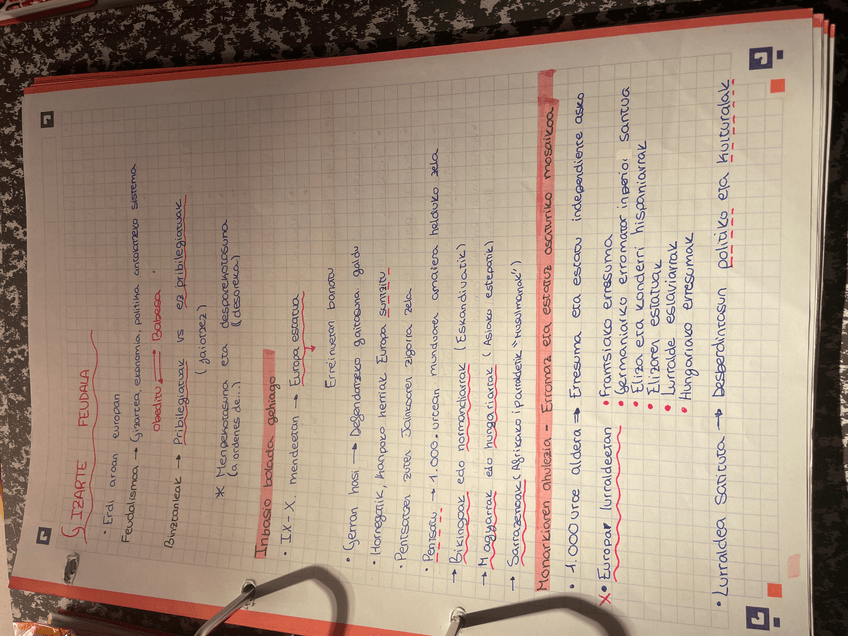 GIZARTE FEUDALA
• Erdi aroan europan
Feudalismoa → Gizartea, ekonomia, politika antolatzeko sistema
obeditu ⇄ Babesa
Biztanleak → Pribilegiatuak vs ez pribilegiatuak
(jaiotzez)
* Menpekotasuna eta desparekotasuna
(a ordenes de...) (desoreka)
Inbasio bolada gehiago
• IX-X. mendeetan → Europa estatua
Erreinuetan banatu
• Gerran hasi → Defendatzeko gaitasuna galdu
• Horregatik, kanpoko herriak Europa suntsitu
• Pentsatzen zuten Jainkoaren zigorra zela
• Pentsatu → 1.000. urtean munduaren amaiera helduko zela
→ Bikingoak edo normandiarrak (Eskandinaviatik)
→ Magyarrak edo hungariarrak (Asiako estepatik)
→ Sarrazenoak (Afrikako iparraldetik "Musulmanak")
Monarkiaren ahulezia - Erromaz eta estatuz osaturiko mosaikoa
• 1.000 urte aldera → Erresuma eta estatu independiente asko
x • Europar lurraldeetan • Frantsiako erresuma
• Germaniarko erromatar inperioi santua
• Eliza eta konderri hispaniarrak
• Elizaren estatuak
• Lurralde eslaviarrak
• Hungariako erresumak
• Lurraldea satituta → Desberdintasun politiko eta kulturalak